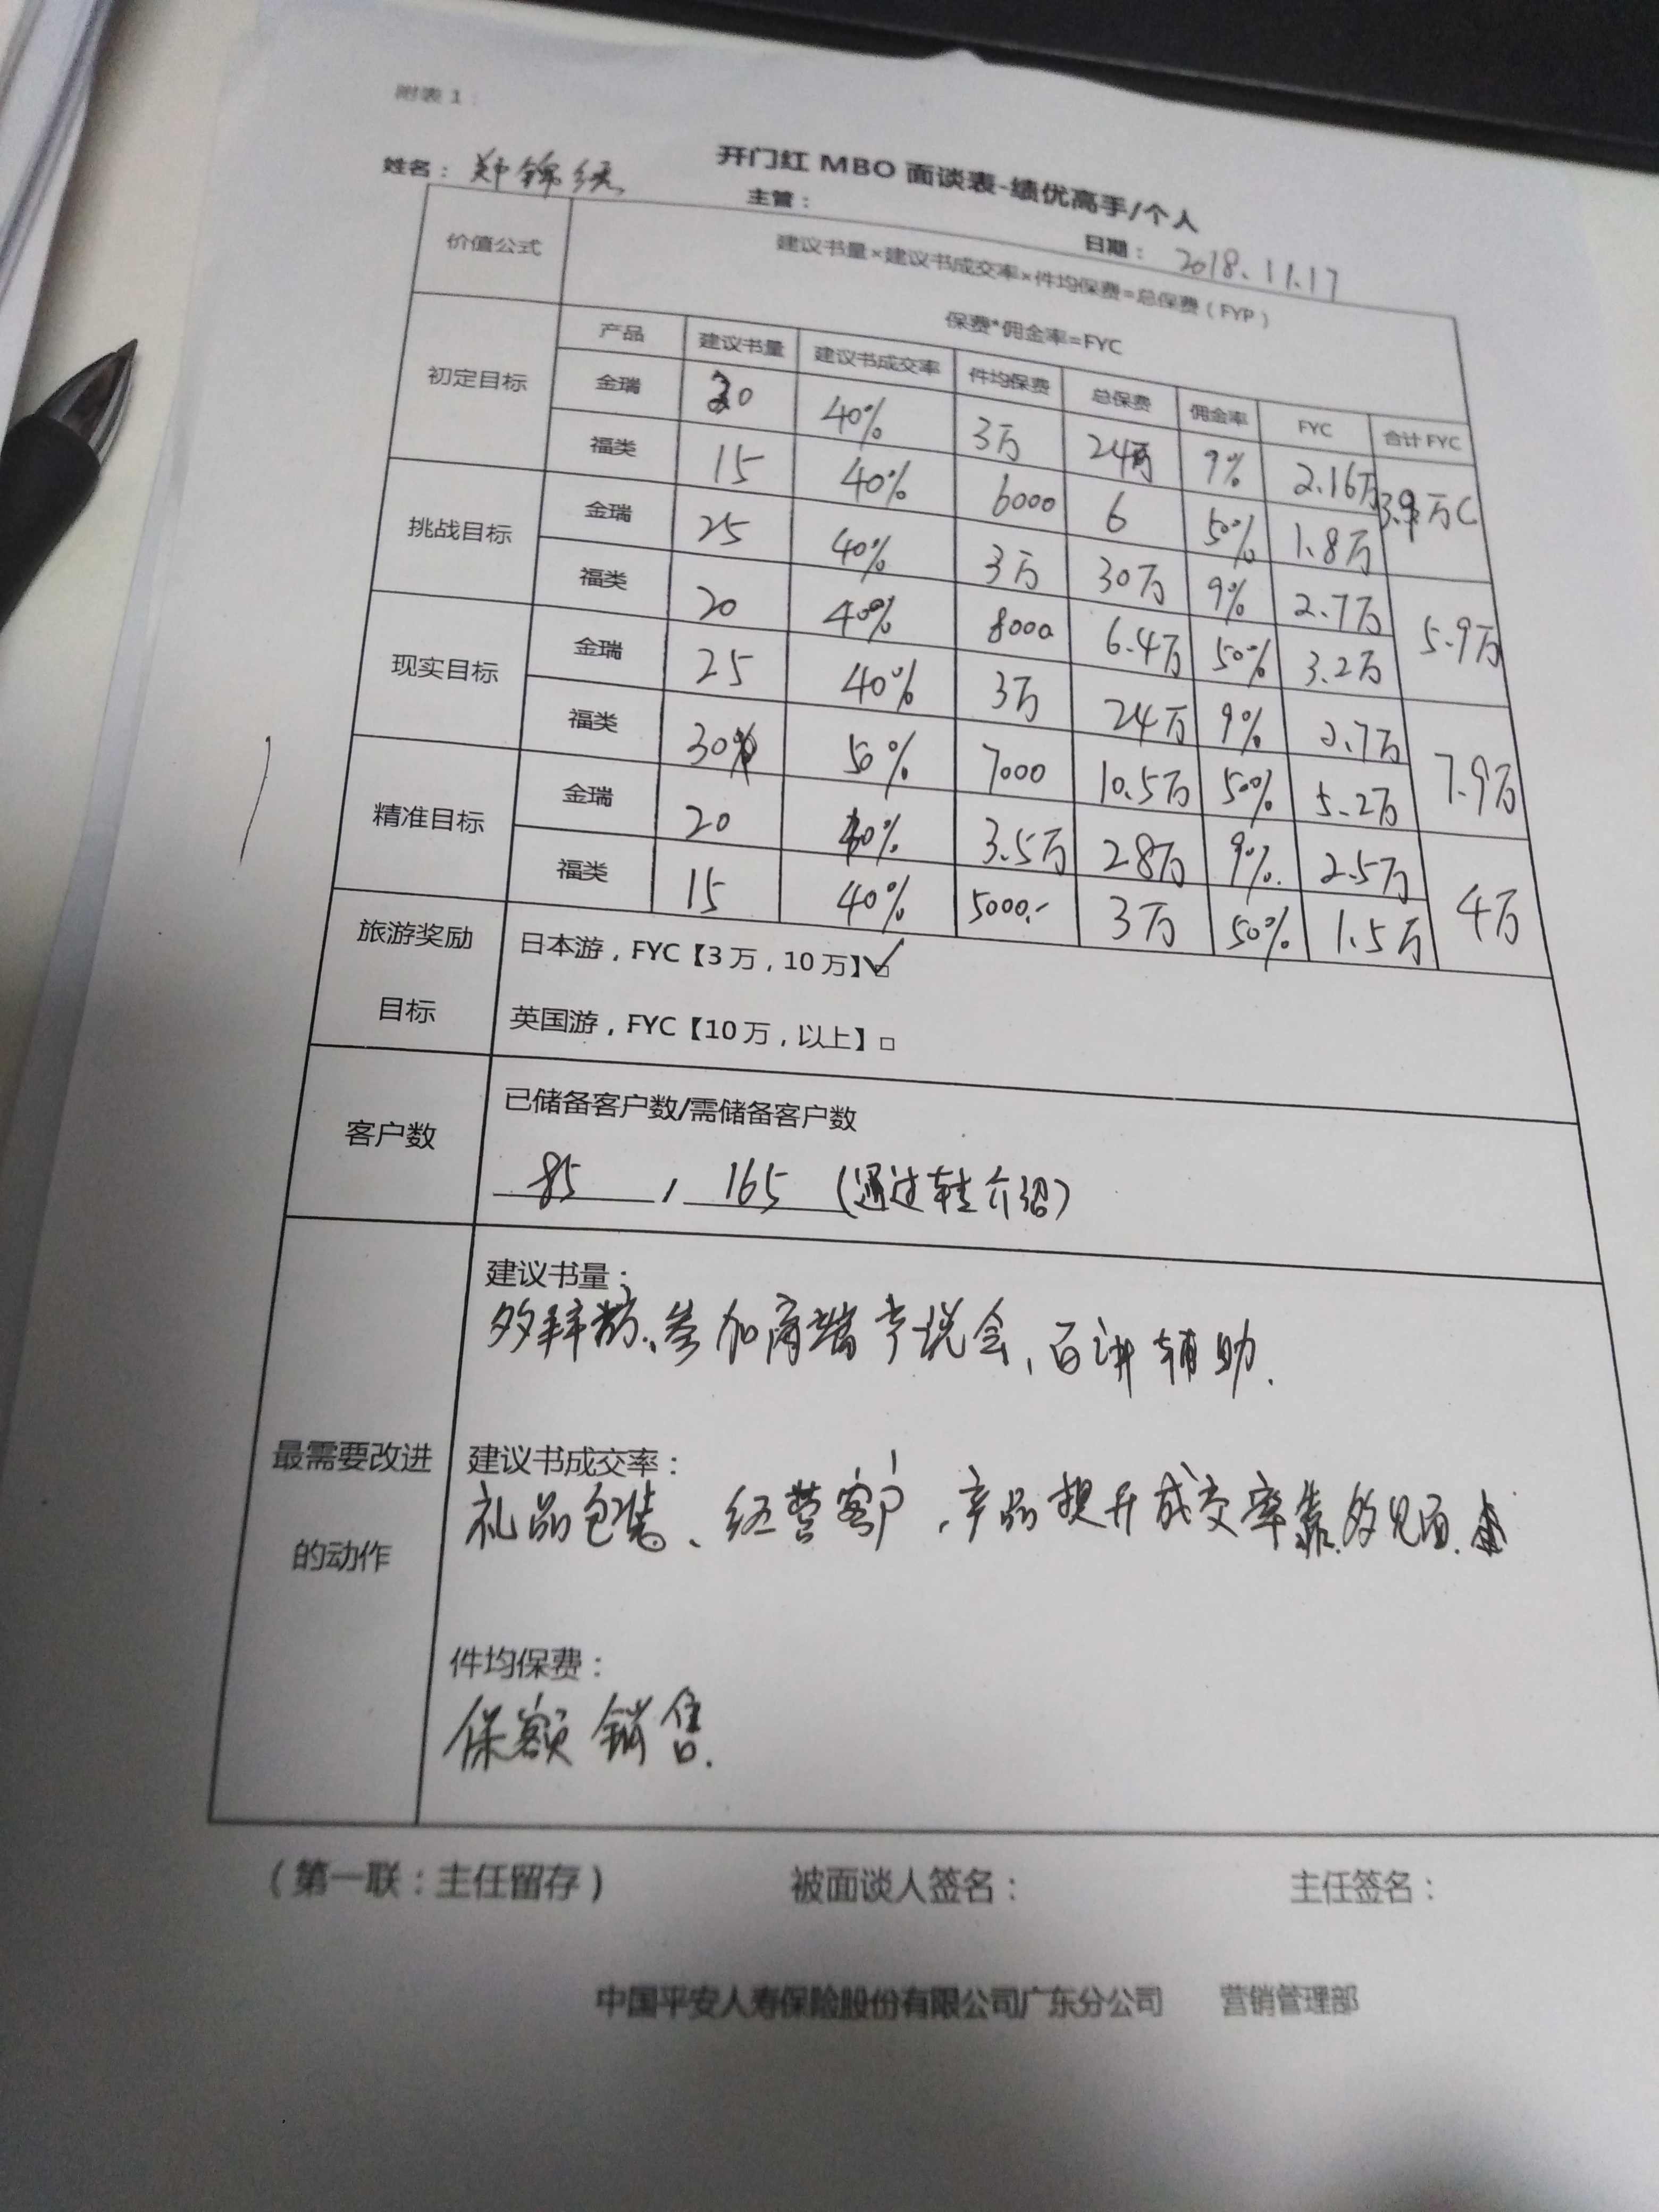 附表 1：
开门红 MBO 面谈表-绩优高手/个人
姓名： 郑锦 主管： 日期： 2018.11.17
价值公式 建议书量×建议书成交率×件均保费=总保费（FYP）
保费*佣金率=FYC
产品 建议书量 建议书成交率 件均保费 总保费 佣金率 FYC 合计 FYC
初定目标 金瑞 20 40% 3万 24万 9% 2.16万 3.9万C
福类 15 40% 6000 6 50% 1.8万
挑战目标 金瑞 25 40% 3万 30万 9% 2.7万 5.9万
福类 20 40% 8000 6.4万 50% 3.2万
现实目标 金瑞 25 40% 3万 24万 9% 2.7万 7.9万
福类 30 50% 7000 10.5万 50% 5.2万
精准目标 金瑞 20 40% 3.5万 28万 9% 2.5万 4万
福类 15 40% 5000.- 3万 50% 1.5万
旅游奖励 日本游，FYC【3 万，10 万】☑
目标 英国游，FYC【10 万，以上】□
已储备客户数/需储备客户数
客户数
85 , 165 (通过转介绍)
建议书量：
多拜访、参加高端产说会、百讲辅助.
最需要改进 建议书成交率：
礼品包装、经营客户，产品提升成交率靠多见面.
的动作
件均保费：
保额销售.
（第一联：主任留存） 被面谈人签名： 主任签名：
中国平安人寿保险股份有限公司广东分公司 营销管理部